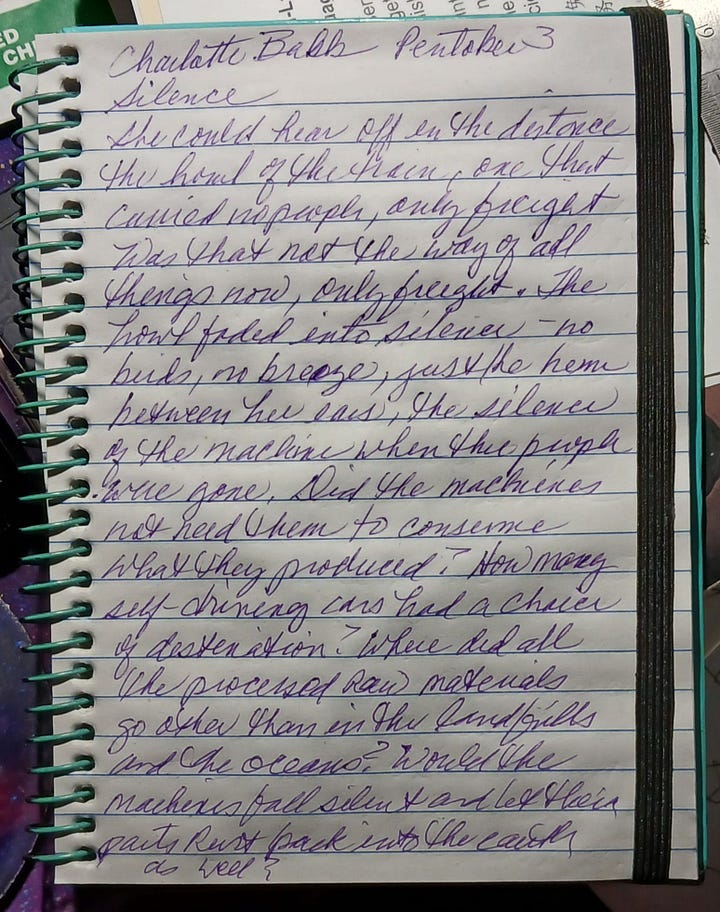 ED
CH
Charlotte Babb Pentober 3
Silence
She could hear off in the distance
the howl of the train, one that
carried no people, only freight
Was that not the way of all
things now, only freight. The
howl faded into silence - no
birds, no breeze, just the hum
between her ears, the silence
of the machine when the people
were gone. Did the machines
not need them to consume
what they produced? How many
self-driving cars had a choice
of destination? Where did all
the processed raw materials
go other than in the landfills
and the oceans? Would the
machines fall silent and let their
parts rust back into the earth
as well?